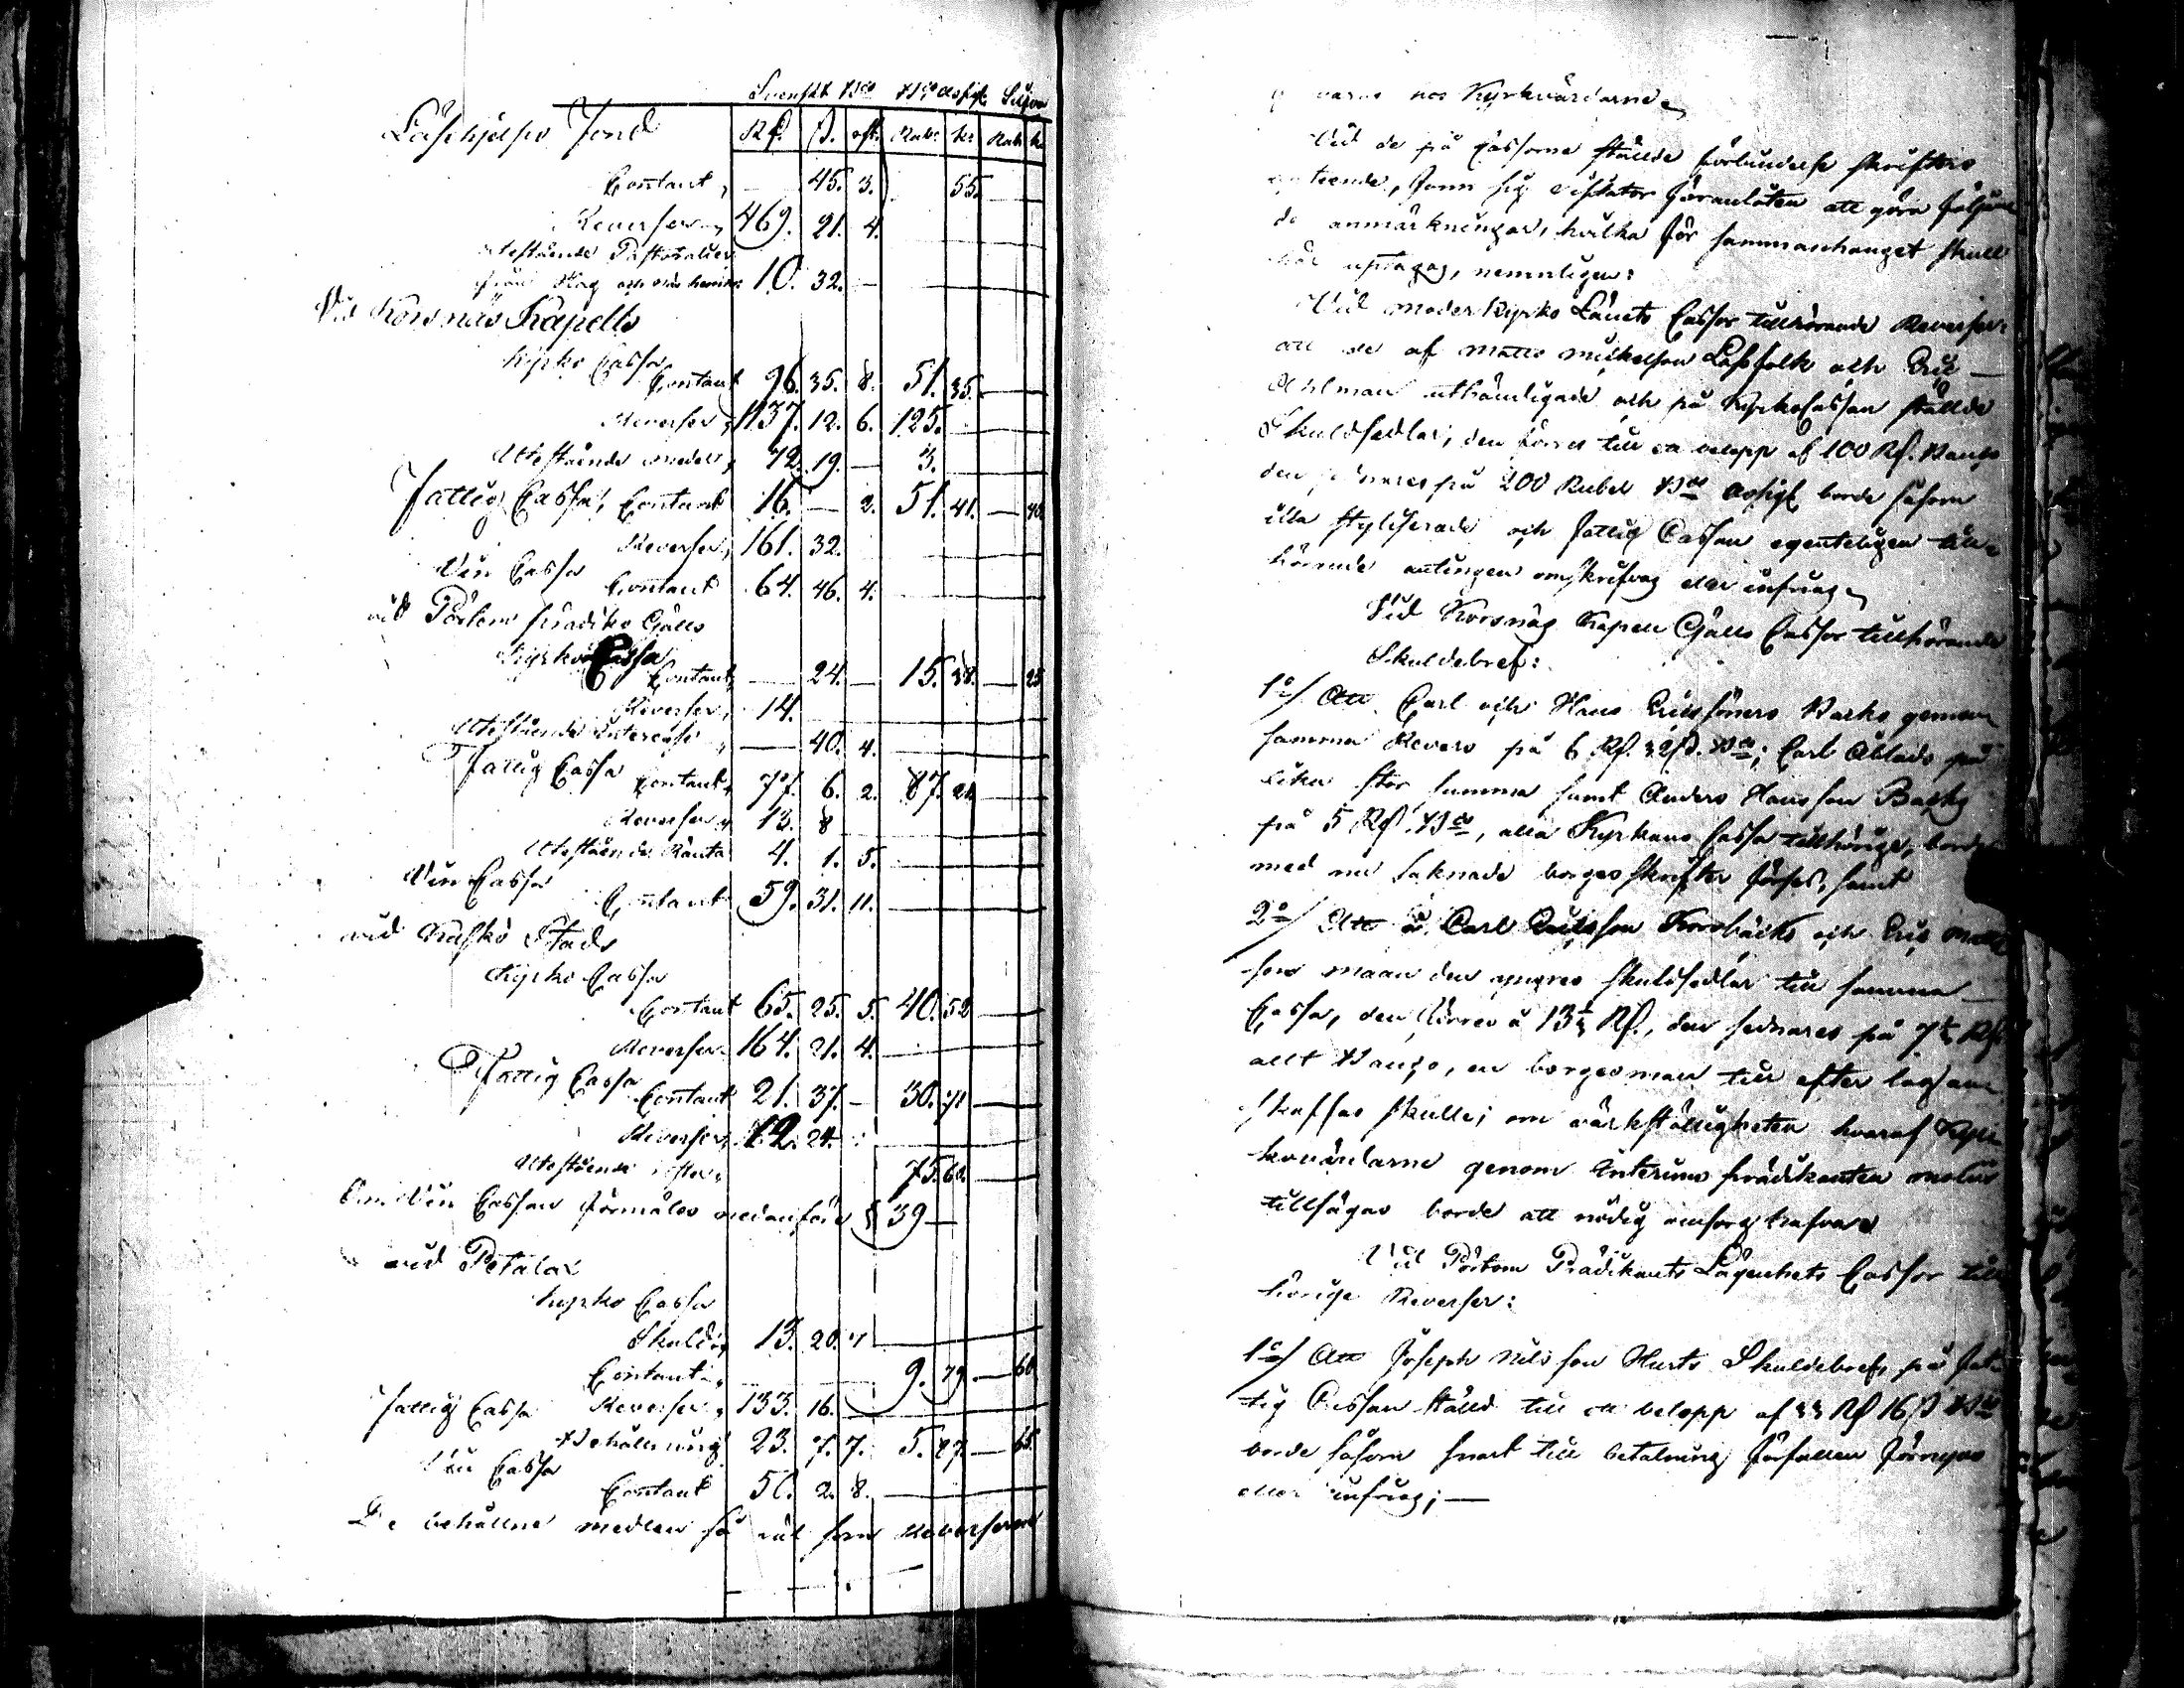 Svenskt Bco B:co Assign: Silfver
Läsehjelps Fond Rd. ß. rst. Rub: kop Rub k
Contant, — 45. 3. 55.
Reverser, 469. 21. 4.
utestående Pastoralier
från 10. 32. —
Vid Korsnäs Kapells
Kyrko Cassa
Contant 96. 35. 8. 51. 35.
Reverser, 1137. 12. 6. 125.
Utestående medel, 72. 19. — 3.
Fattig Cassa, Contant 16. — 2. 51. 41. — 40.
Reverser, 161. 32.
Vin Cassa
Contant 64. 46. 4.
vid Pörtom Prädiko Gälls
Kyrko Cassa
Contant, — 24. — 15. 38. — 25
Reverser, 14.
Utestående Interesse, — 40. 4.
Fattig Cassa
Contant, 77. 6. 2. 87. 21
Reverser, 13. 8
Utestående Ränta 4. 1. 5.
Vin Cassa
Contant 59. 31. 11.
vid Kaskö Stads
Kyrko Cassa
Contant 65. 25. 5. 40. 52
Reverser 164. 21. 4.
Fattig Cassa
Contant 21. 37. — 30. 71
Reverser, 12. 24.
Utestående 75. 60.
Om Vin Cassan förmäles nedanför § 39 —
vid Petalax
Kyrko Cassa
Skuld, 13. 20. 7
Contant, 9. 79. — 60
Fattig Cassa Reverser, 133. 16.
Behållning 23. 7. 7. 5. 87. — 65.
Vin Cassa
Contant 50. 2. 8.
De behållne medlen så väl som Reverserne
varas hos Kyrkvärdarne
Vid de på Cassorne ställde förbindelse skrifters
seende, fann sig Visitator föranlåten att göra följan
de anmärkningar, hvilka för sammanhanget skull
här uptagas, nemnligen:
Vid moderkyrko Länets Cassor tillhörande Reverser:
att de af Matts Mickelson Lassfolk och Eric —
Ahlman uthändigade och på Kyrkocassan ställde
Skuldsedlar, den förres till en belopp af 100 Rd. Banco
den sednares på 200 Rubel Bco Assign borde såsom
illa styliserade och Fattig Cassan egenteligen till-
hörande antingen omskrifvas eller infrias
Vid Korsnäs Kapell Gälls Cassor tillhörande
Skuldebref:
1o/ Att Carl och Hans Erics söners Barks gemen
samma Revers på 6 Rd. 32 ß. Bco; Carl Åblads på
lika stor summa samt Anders Hansson Basks
på 5 Rd Bco, alla Kyrkans Cassa tillhörige, borde
med nu saknade borges skrifter förses, samt
2o/ Att å Carl Ericsson Korsbäcks och Eric Matts
son Maan den yngres skuldsedlar till samma —
Cassa, den förres å 13⅓ Rd., den sednares på 7½ Rd
allt Banco, en borgesman till efter lag an
skaffas skulle; om värkställigheten hvaraf Kyr
kovärdarne genom Interims prädikanten
tillsägas borde att nödig omsorg hafva
Vid Pörtom Prädikants Lägenhets Cassor till
hörige Reverser:
1o/ Att Joseph Nilsson Hursts Skuldebref, på Fat
tig Cassan ställd till ett belopp af 33 Rd 16 ß Bco
borde såsom snart till betalning förfallen förnyas
eller infrias; —